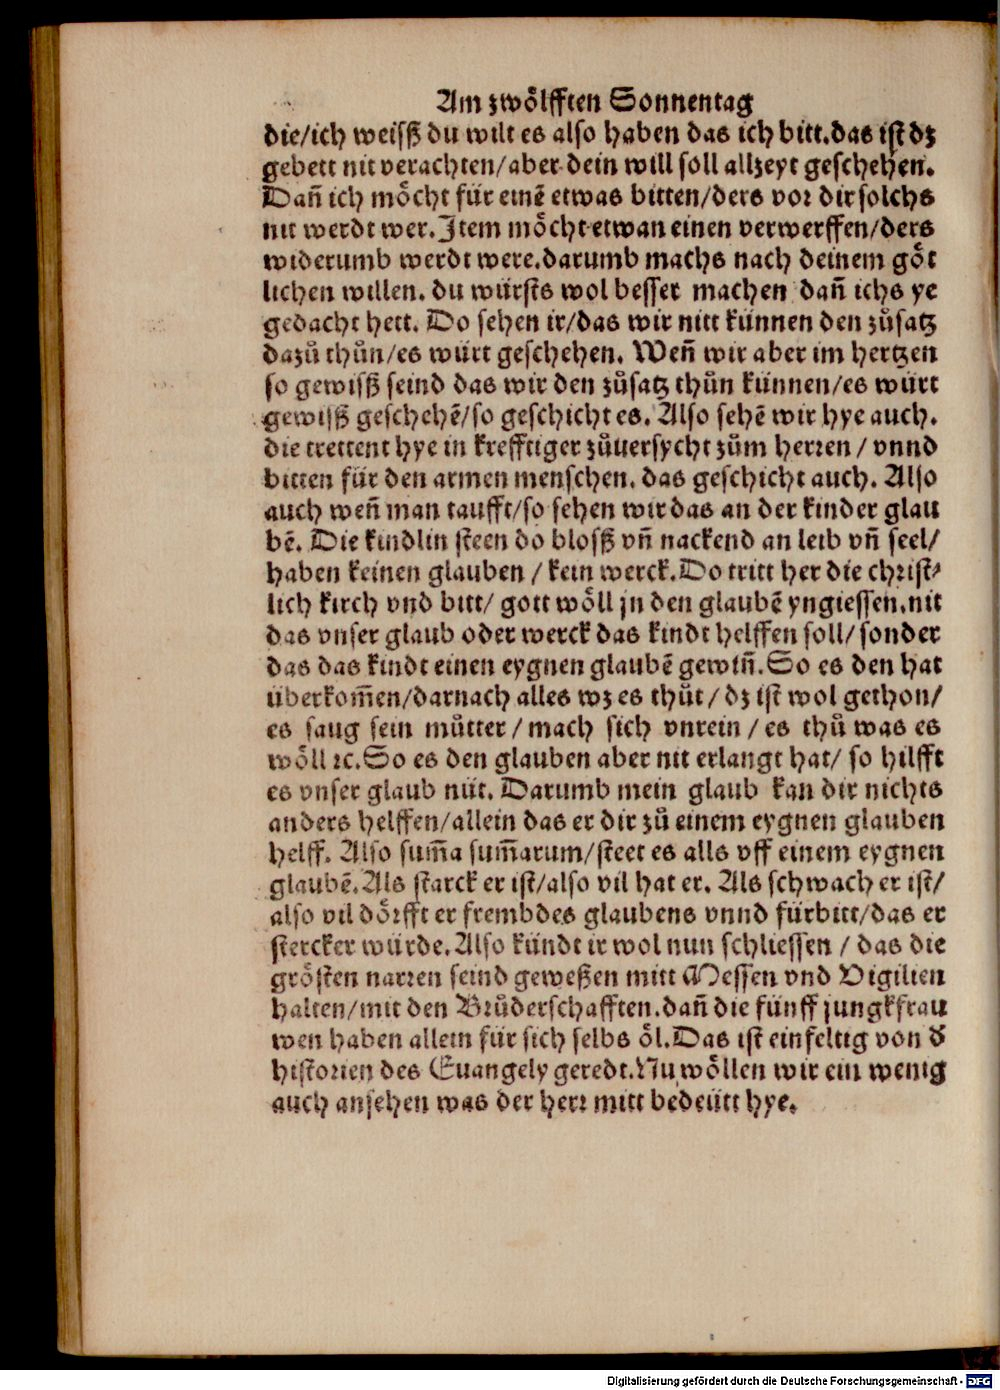 Am zwoͤlfften Sonnentag
die/ich weisß du wilt es also haben das ich bitt.das ist dz
gebett nit verachten/aber dein will soll allzeyt geschehen.
Dañ ich moͤcht für einē etwas bitten/ders vor dir solchs
nit werdt wer.Item moͤcht etwan einen verwerffen/ders
widerumb werdt were.darumb machs nach deinem goͤt
lichen willen. du würsts wol besser machen dañ ichs ye
gedacht hett. Do sehen ir/das wir nitt künnen den zuͦsatz
dazuͦ thuͦn/es würt geschehen. Weñ wir aber im hertzen
so gewisß seind das wir den zuͦsatz thuͦn künnen/es würt
gewisß geschehē/so geschicht es. Also sehē wir hye auch.
die trettent hye in krefftiger zuͦuersycht zuͦm herren / vnnd
bitten für den armen menschen. das geschicht auch. Also
auch weñ man taufft/so sehen wir das an der kinder glau
bē. Die kindlin steen do blosß vñ nackend an leib vñ seel/
haben keinen glauben / kein werck.Do tritt her die christ⸗
lich kirch vnd bitt/ gott woͤll jn den glaubē yngiessen.nit
das vnser glaub oder werck das kindt helffen soll/ sonder
das das kindt einen eygnen glaubē gewiñ.So es den hat
überkom̄en/darnach alles wz es thuͦt / dz ist wol gethon/
es saug sein muͦtter / mach sich vnrein / es thuͦ was es
woͤll ꝛc.So es den glauben aber nit erlangt hat/ so hilfft
es vnser glaub nüt. Darumb mein glaub kan dir nichts
anders helffen/allein das er dir zuͦ einem eygnen glauben
helff. Also sum̄a sum̄arum/steet es alls vff einem eygnen
glaubē.Als starck er ist/also vil hat er. Als schwach er ist/
also vil doͤrfft er frembdes glaubens vnnd fürbitt/das er
stercker würde.Also kündt ir wol nun schliessen / das die
groͤsten narren seind geweßen mitt Messen vnd Vigilien
halten/mit den Bruͤderschafften.dañ die fünff jungkfrau
wen haben allein für sich selbs oͤl.Das ist einfeltig von ď
historien des Euangely geredt.Nu woͤllen wir ein wenig
auch ansehen was der herr mitt bedeütt hye.
Digitalisierung gefördert durch die Deutsche Forschungsgemeinschaft - DFG